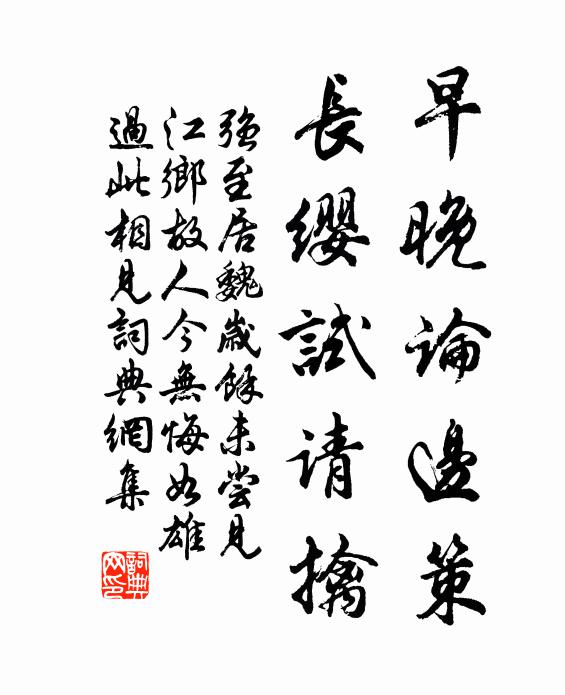 早晚論邊策
長纓試请擒
强至居魏歲餘未尝見
江鄉故人今無悔如雄
過此相見詞典網集
詞典网印